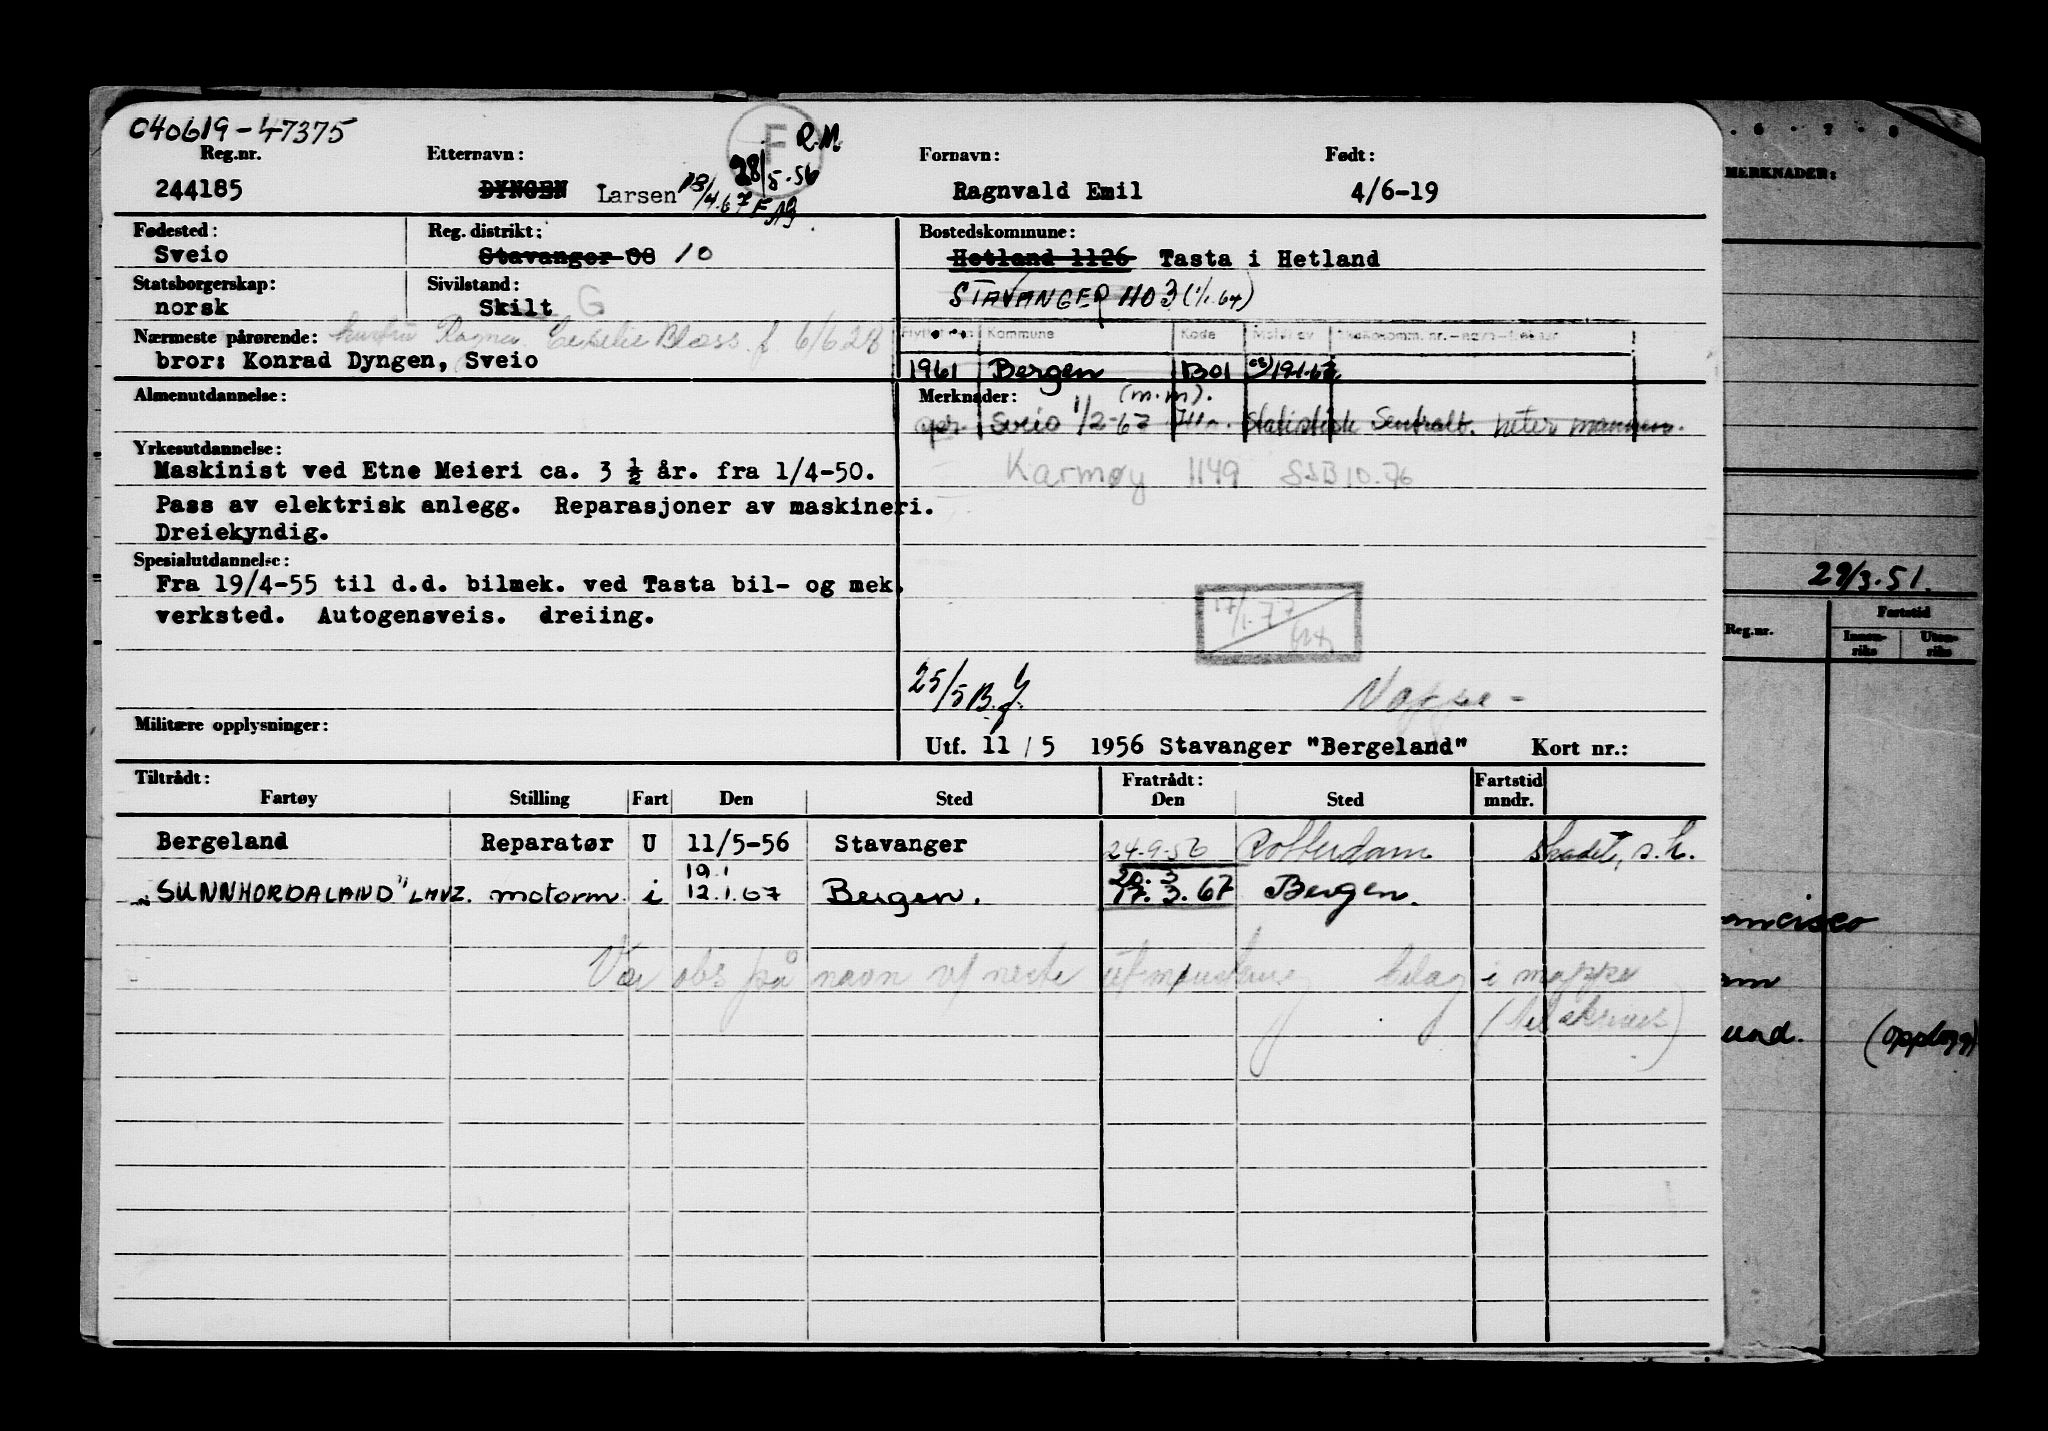 040619-47375
Reg.nr. Etternavn: F R.M. Fornavn: Født:
244185 DYNGEN Larsen 28/5-56 Ragnvald Emil 4/6-19
Fødested: Reg. distrikt: Bostedskommune:
Sveio Stavanger 08 10 Hetland 1126 Tasta i Hetland
Statsborgerskap: Sivilstand: STAVANGER 1103 (1/1.64)
norsk Skilt G
Nærmeste pårørende: 6/6 28 Kommune Kode
bror: Konrad Dyngen, Sveio 1961 Bergen B01
Almenutdannelse: Merknader: (m.m).
Sveio 1/2-67 Statistisk Sentralb. heter
Yrkesutdannelse:
Maskinist ved Etne Meieri ca. 3 ½ år. fra 1/4-50. Karmøy 1149 SSB 10.76
Pass av elektrisk anlegg. Reparasjoner av maskineri.
Dreiekyndig.
Spesialutdannelse:
Fra 19/4-55 til d.d. bilmek. ved Tasta bil- og mek.
verksted. Autogensveis. dreiing.
17/1-77
25/5 B.J. Mappe -
Militære opplysninger:
Utf. 11 / 5 1956 Stavanger "Bergeland" Kort nr.:
Tiltrådt: Fratrådt: Fartstid
Fartøy Stilling Fart Den Sted Den Sted mndr.
Bergeland Reparatør U 11/5-56 Stavanger 24-9-56 Rotterdam Skadet, s.h.
19.1 20. 3
"SUNNHORDALAND" LHVZ. motorm. i 12.1.67 Bergen. 17. 3. 67 Bergen.
Vær obs på navn v/ neste utmønstring bilag i mappe
MERKNADER:
29/3.51.
Reg.nr. Fartstid
Innenriks Utenriks
ancisco
am
und. (opplogg)